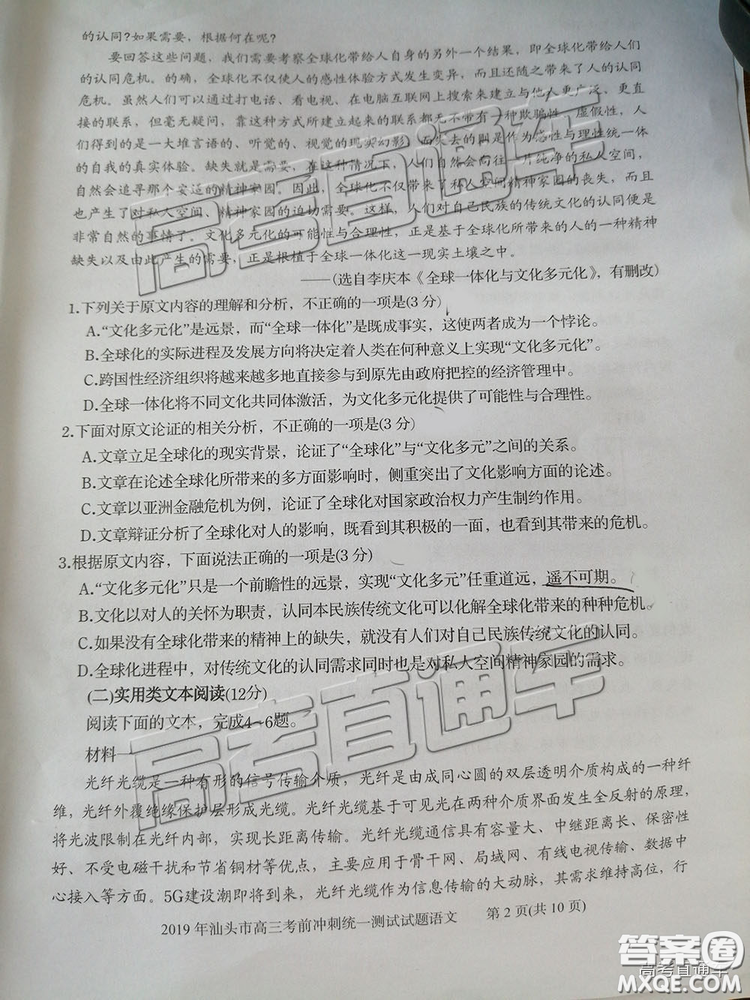 的认同?如果需要，根据何在呢?
要回答这些问题，我们需要考察全球化带给人自身的另外一个结果，即全球化带给人们
的认同危机。的确，全球化不仅使人的感性体验方式发生变异，而且还随之带来了人的认同
危机。虽然人们可以打电话、看电视、在电脑互联网上搜索来建立与他人更广泛、更直
接的联系，但毫无疑问，靠这种方式所建立起来的联系都无不带有一种欺骗性、虚假性，人
们得到的是一大堆言语的、听觉的、视觉的现实幻影，而失去的则是作为感性与理性统一体
的自我的真实体验。缺失就是需要，在这种情况下，人们自然会向往一片纯净的私人空间，
自然会追寻那个安逼的精神家园。因此，全球化不仅带来了私人空间精神家园的丧失，而且
也产生了对私人空间、精神家园的迫切需要。这样，人们对自己民族的传统文化的认同便是
非常自然的事情了。文化多元化的可能性与合理性，正是基于全球化所带来的人的一种精神
缺失以及由此产生的需要，正是根植于全球一体化这一现实土壤之中。
——(选自李庆本《全球一体化与文化多元化》，有删改)
1.下列关于原文内容的理解和分析，不正确的一项是(3 分)
A.“文化多元化”是远景，而“全球一体化”是既成事实，这使两者成为一个悖论。
B.全球化的实际进程及发展方向将决定着人类在何种意义上实现“文化多元化”。
C.跨国性经济组织将越来越多地直接参与到原先由政府把控的经济管理中。
D.全球一体化将不同文化共同体激活，为文化多元化提供了可能性与合理性。
2.下面对原文论证的相关分析，不正确的一项是(3 分)
A.文章立足全球化的现实背景，论证了“全球化”与“文化多元”之间的关系。
B.文章在论述全球化所带来的多方面影响时，侧重突出了文化影响方面的论述。
C.文章以亚洲金融危机为例，论证了全球化对国家政治权力产生制约作用。
D.文章辩证分析了全球化对人的影响，既看到其积极的一面，也看到其带来的危机。
3.根据原文内容，下面说法正确的一项是(3 分)
A.“文化多元化”只是一个前瞻性的远景，实现“文化多元”任重道远，遥不可期。
B.文化以对人的关怀为职责，认同本民族传统文化可以化解全球化带来的种种危机。
C.如果没有全球化带来的精神上的缺失，就没有人们对自己民族传统文化的认同。
D.全球化进程中，对传统文化的认同需求同时也是对私人空间精神家园的需求。
(二)实用类文本阅读(12分)
阅读下面的文本，完成4~6题。
材料一
光纤光缆是一种有形的信号传输介质，光纤是由成同心圆的双层透明介质构成的一种纤
维，光纤外覆绝缘保护层形成光缆。光纤基于可见光在两种介质界面发生全反射的原理，
将光波限制在光纤内部，实现长距离传输。光纤光缆通信具有容量大、中继距离长、保密性
好、不受电磁干扰和节省铜材等优点，主要应用于骨干网、局域网、有线电视传输、数据中
心接入等方面。5G建设潮即将到来，光纤光缆作为信息传输的大动脉，其需求维持高位，行
2019 年汕头市高三考前冲刺统一测试试题语文 第 2 页(共 10 页)
高考直通车
高考直通车
答案圈
高考直通车
MXQE.COM